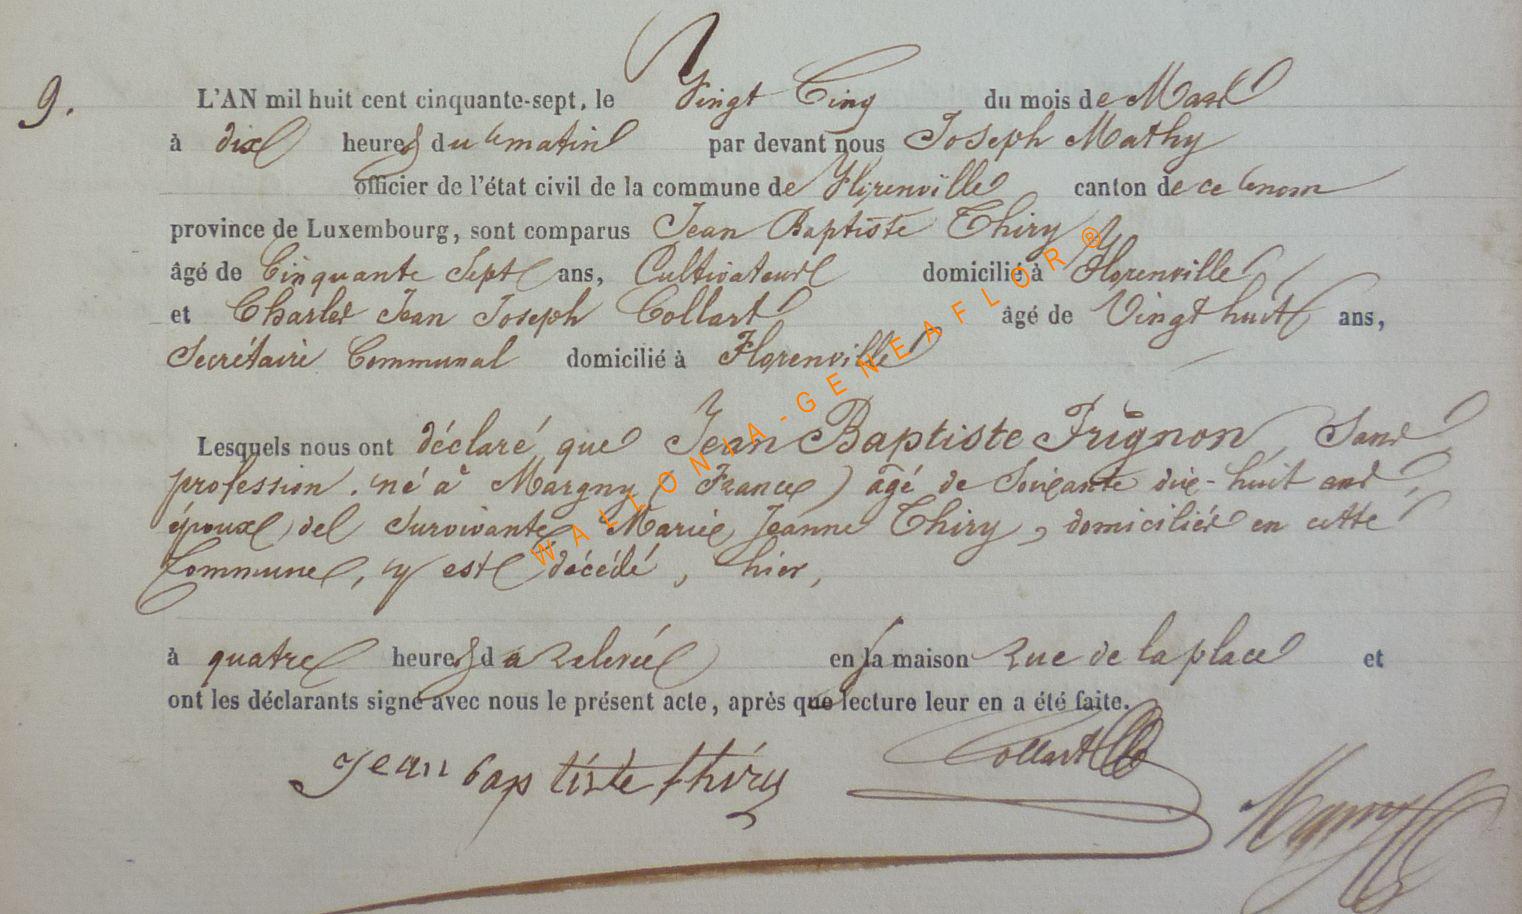 9.
L'AN mil huit cent cinquante-sept, le Vingt Cinq du mois de Mars
à dix heures du matin par devant nous Joseph Mathy
officier de l'état civil de la commune de Florenville canton de ce nom
province de Luxembourg, sont comparus Jean Baptiste Thiry
âgé de Cinquante Sept ans, Cultivateur domicilié à Florenville
et Charles Jean Joseph Collart âgé de Vingt huit ans,
Secrétaire Communal domicilié à Florenville
Lesquels nous ont déclaré que Jean Baptiste Frignon, Sans
profession, né à Margny (France) âgé de Soixante dix-huit ans,
époux de Survivante Marie Jeanne Thiry, domiciliés en cette
Commune, y est décédé, hier,
à quatre heures de relevée en la maison rue de la place et
ont les déclarants signé avec nous le présent acte, après que lecture leur en a été faite.
Jean baptiste thiry Collart
WALLONIA-GENEAFLOR®